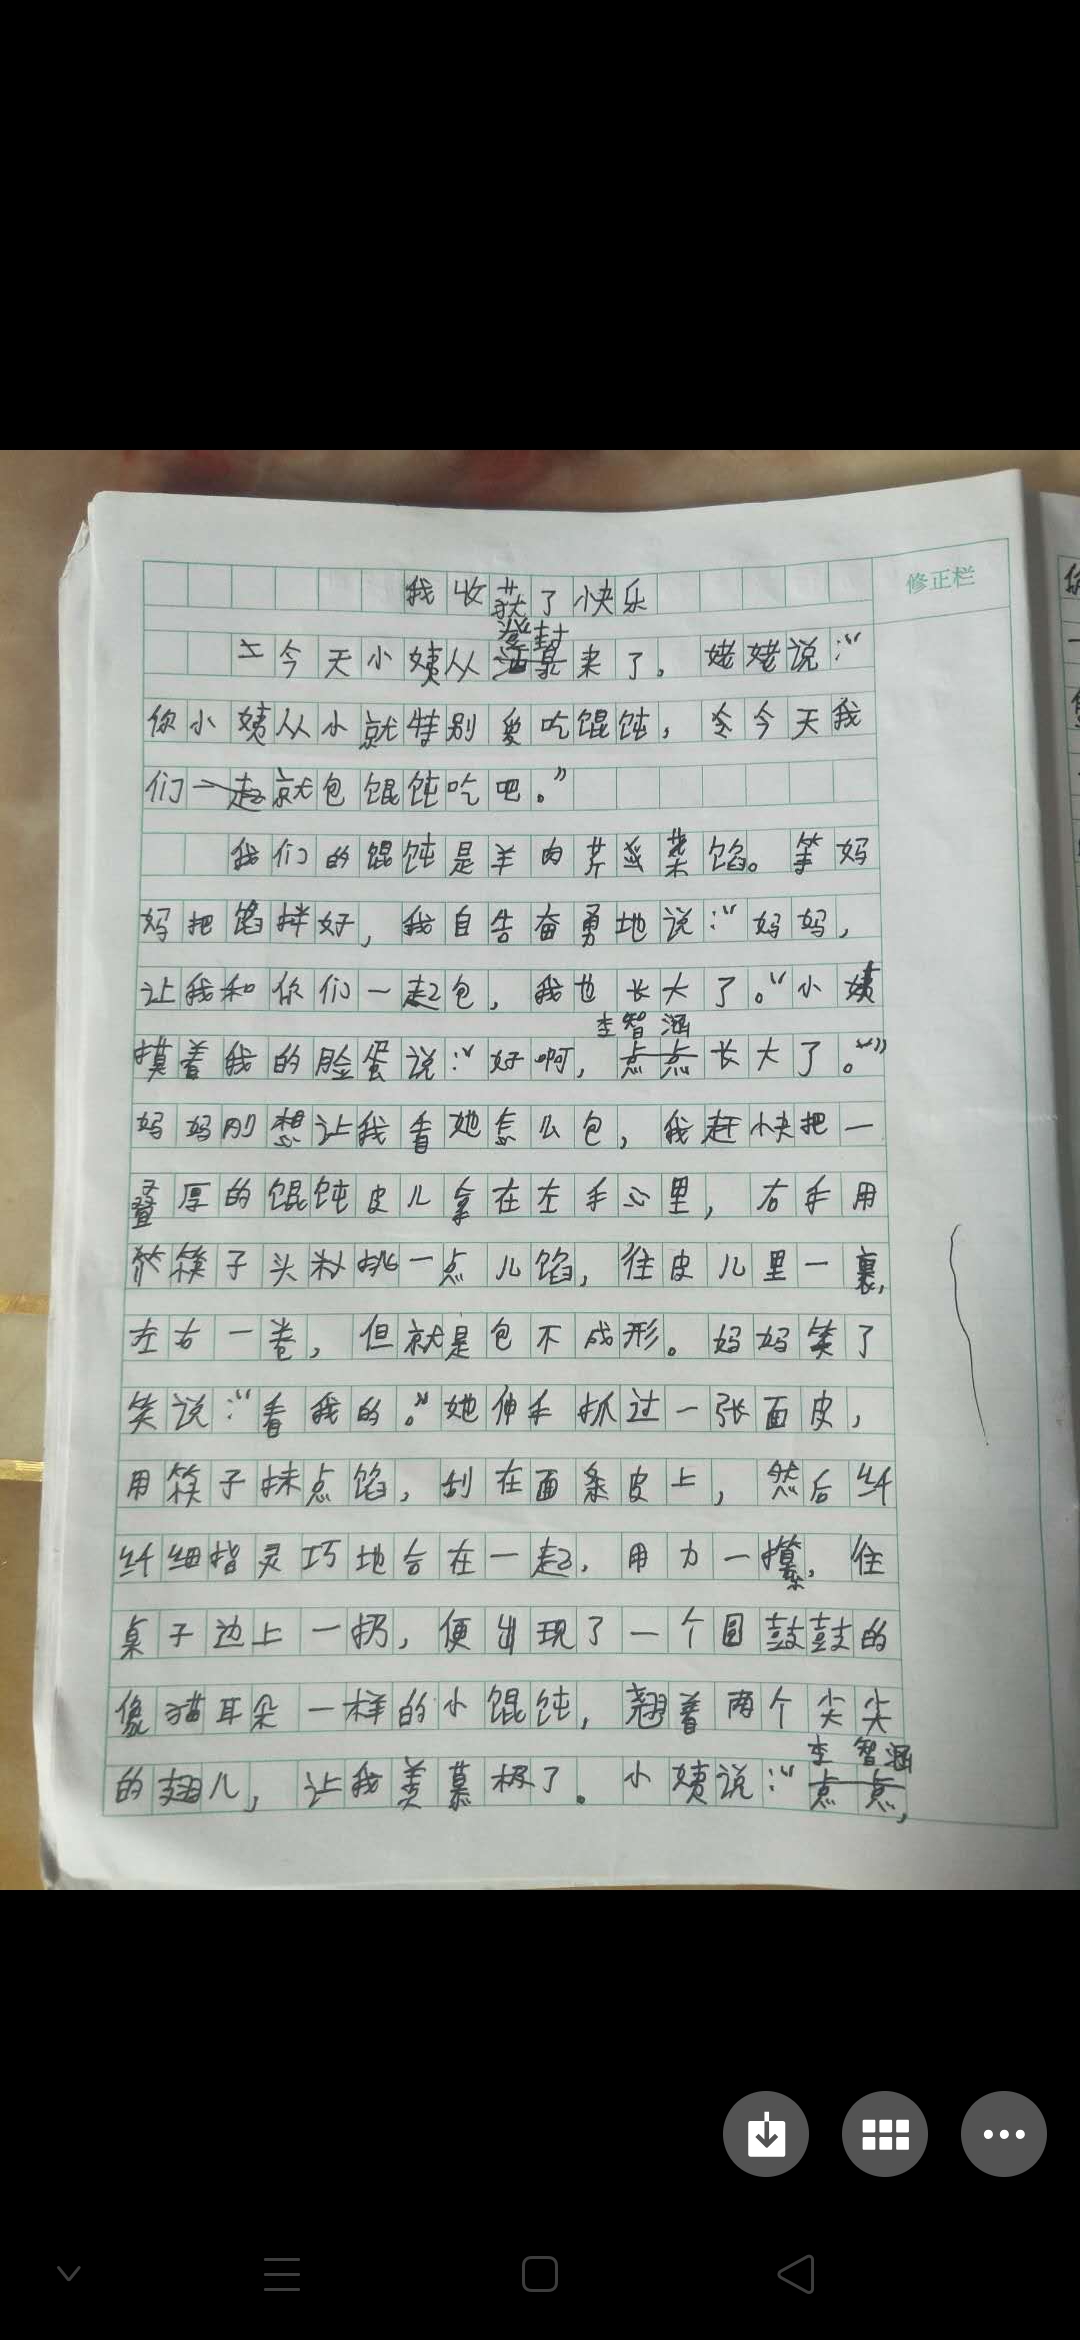 我收获了快乐
修正栏
今天小姨从登封来了。姥姥说:“
你小姨从小就特别爱吃馄饨,今天我
们就包馄饨吃吧。”
我们的馄饨是羊肉芹菜馅。等妈
妈把馅拌好,我自告奋勇地说:“妈妈,
让我和你们一起包,我也长大了。“小姨
李智涵
摸着我的脸蛋说:“好啊,点点长大了。”
妈妈刚想让我看她怎么包,我赶快把一
叠厚的馄饨皮儿拿在左手心里,右手用
筷子头挑一点儿馅,往皮儿里一裹,
左右一卷,但就是包不成形。妈妈笑了
笑说:“看我的。”她伸手抓过一张面皮,
用筷子抹点馅,刮在面条皮上,然后纤
纤细指灵巧地合在一起,用力一攥,往
桌子边上一扔,便出现了一个圆鼓鼓的
像猫耳朵一样的小馄饨,翘着两个尖尖
李智涵
的翅儿,让我羡慕极了。小姨说:“点点,